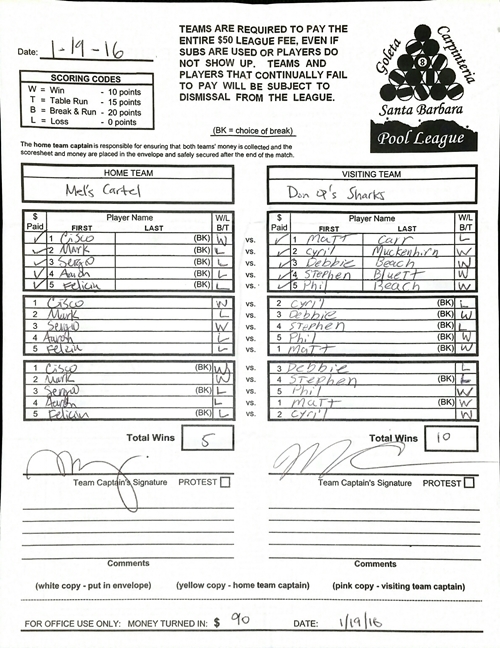 Date: 1-19-16
TEAMS ARE REQUIRED TO PAY THE
ENTIRE $50 LEAGUE FEE, EVEN IF
SUBS ARE USED OR PLAYERS DO
NOT SHOW UP. TEAMS AND
PLAYERS THAT CONTINUALLY FAIL
TO PAY WILL BE SUBJECT TO
DISMISSAL FROM THE LEAGUE.
(BK = choice of break)
Goleta Carpinteria
8
Santa Barbara
Pool League
SCORING CODES
W = Win - 10 points
T = Table Run - 15 points
B = Break & Run - 20 points
L = Loss - 0 points
The home team captain is responsible for ensuring that both teams' money is collected and the
scoresheet and money are placed in the envelope and safely secured after the end of the match.
HOME TEAM VISITING TEAM
Mel's Cartel Don Q's Sharks
$ Paid Player Name FIRST LAST W/L B/T $ Paid Player Name FIRST LAST W/L B/T
✓ 1 Cisco (BK) W vs. ✓ 1 Matt Carr L
✓ 2 Mark (BK) L vs. ✓ 2 Cyril Muckenhirn W
✓ 3 Sergio (BK) L vs. ✓ 3 Debbie Beach W
✓ 4 Aaron (BK) L vs. ✓ 4 Stephen Bluett W
✓ 5 Felicia (BK) L vs. ✓ 5 Phil Beach W
1 Cisco W vs. 2 Cyril (BK) L
2 Mark L vs. 3 Debbie (BK) W
3 Sergio W vs. 4 Stephen (BK) L
4 Aaron L vs. 5 Phil (BK) W
5 L vs. 1 Matt (BK) W
1 Cisco (BK) W vs. 3 Debbie L
2 Mark W vs. 4 Stephen (BK) L
3 Sergio (BK) L vs. 5 Phil W
4 Aaron L vs. 1 Matt (BK) W
5 Felicia (BK) L vs. 2 Cyril W
Total Wins 5 Total Wins 10
Team Captain's Signature PROTEST Team Captain's Signature PROTEST
Comments Comments
(white copy - put in envelope) (yellow copy - home team captain) (pink copy - visiting team captain)
FOR OFFICE USE ONLY: MONEY TURNED IN: $ 90 DATE: 1/19/16